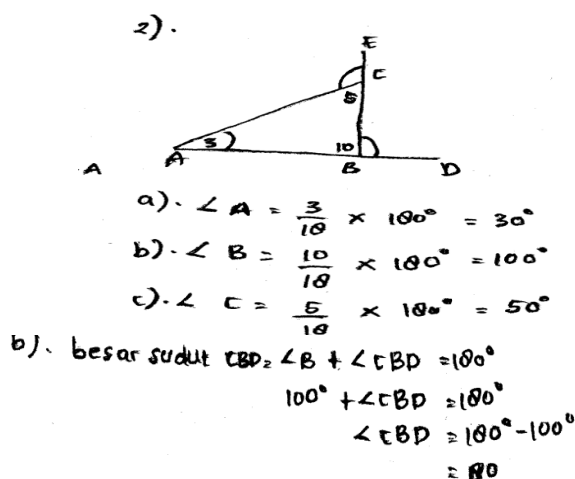 2).
E
C
5
3
10
A
B
D
A
a). ∠ A = 3/18 × 180° = 30°
b). ∠ B = 10/18 × 180° = 100°
c). ∠ C = 5/18 × 180° = 50°
b). besar sudut CBD = ∠B + ∠CBD = 180°
100° + ∠CBD = 180°
∠CBD = 180° - 100°
= 80